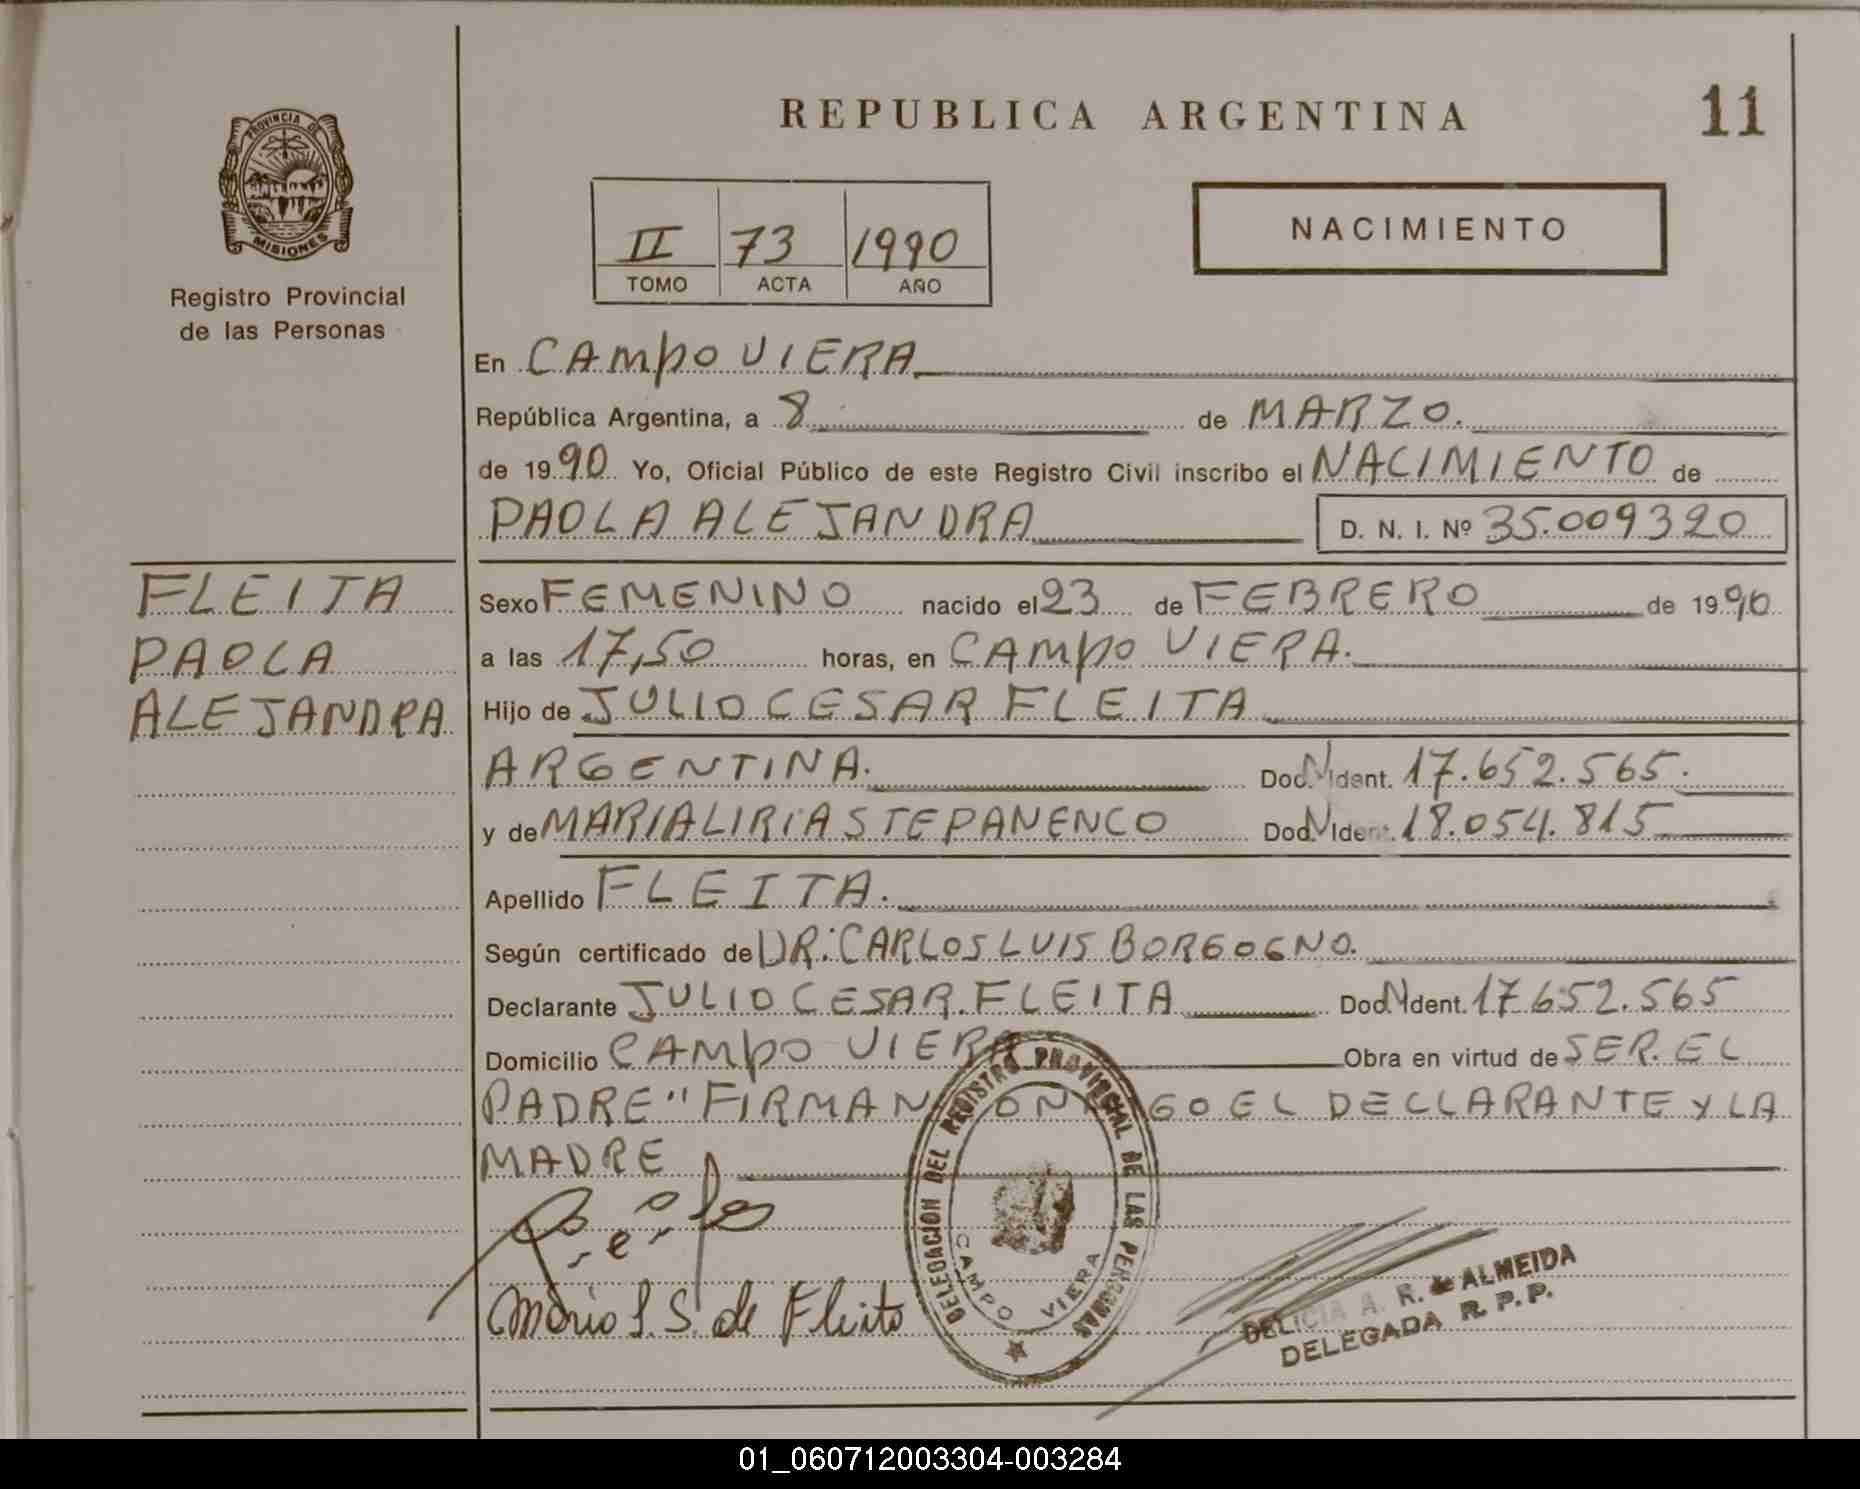 REPUBLICA ARGENTINA
11
PROVINCIA DE
MISIONES
Registro Provincial
de las Personas
II 73 1990
TOMO ACTA AÑO
NACIMIENTO
En CAMPO VIERA
República Argentina, a 8 de MARZO.
de 1990 Yo, Oficial Público de este Registro Civil inscribo el NACIMIENTO de
PAOLA ALEJANDRA D. N. I. Nº 35.009320
FLEITA
PAOLA
ALEJANDRA
Sexo FEMENINO nacido el 23 de FEBRERO de 1990
a las 17,50 horas, en CAMPO VIERA.
Hijo de JULIO CESAR FLEITA
ARGENTINA. Doc. N Ident. 17.652.565.
y de MARIA LIRIA STEPANENCO Doc. N Ident. 18.054.815
Apellido FLEITA.
Según certificado de DR: CARLOS LUIS BORGOGNO.
Declarante JULIO CESAR FLEITA Doc. N Ident. 17652.565
Domicilio CAMPO VIERA Obra en virtud de SER EL
PADRE "FIRMAN CONMIGO EL DECLARANTE Y LA
MADRE
Maria L. S. de Fleita
DELEGACION DEL REGISTRO PROVINCIAL DE LAS PERSONAS
CAMPO VIERA
DELICIA A. R. de ALMEIDA
DELEGADA R. P. P.
01_060712003304-003284